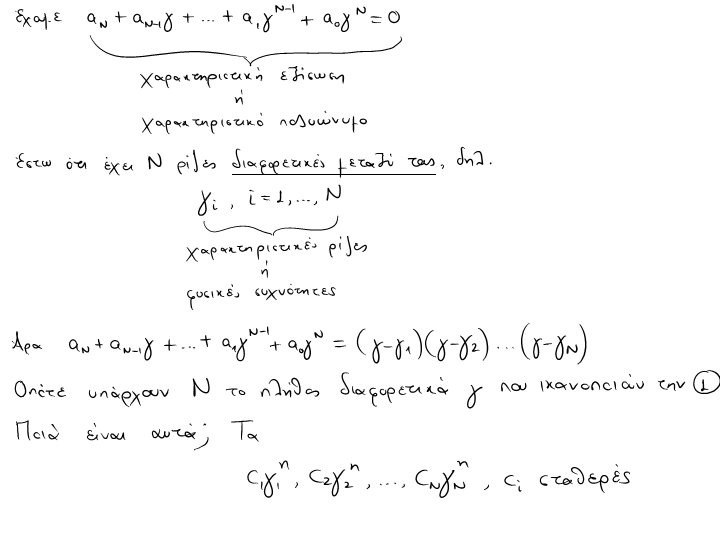 Έχουμε a_N + a_{N-1}γ + ... + a_1γ^{N-1} + a_0γ^N = 0
χαρακτηριστική εξίσωση
ή
χαρακτηριστικό πολυώνυμο
Έστω ότι έχει N ρίζες διαφορετικές μεταξύ τους, δηλ.
γ_i, i=1,...,N
χαρακτηριστικές ρίζες
ή
φυσικές συχνότητες
Άρα a_N + a_{N-1}γ + ... + a_1γ^{N-1} + a_0γ^N = (γ-γ_1)(γ-γ_2)...(γ-γ_N)
Οπότε υπάρχουν N το πλήθος διαφορετικά γ που ικανοποιούν την ①
Ποιά είναι αυτά; Τα
c_1γ_1^n, c_2γ_2^n, ..., c_Nγ_N^n, c_i σταθερές